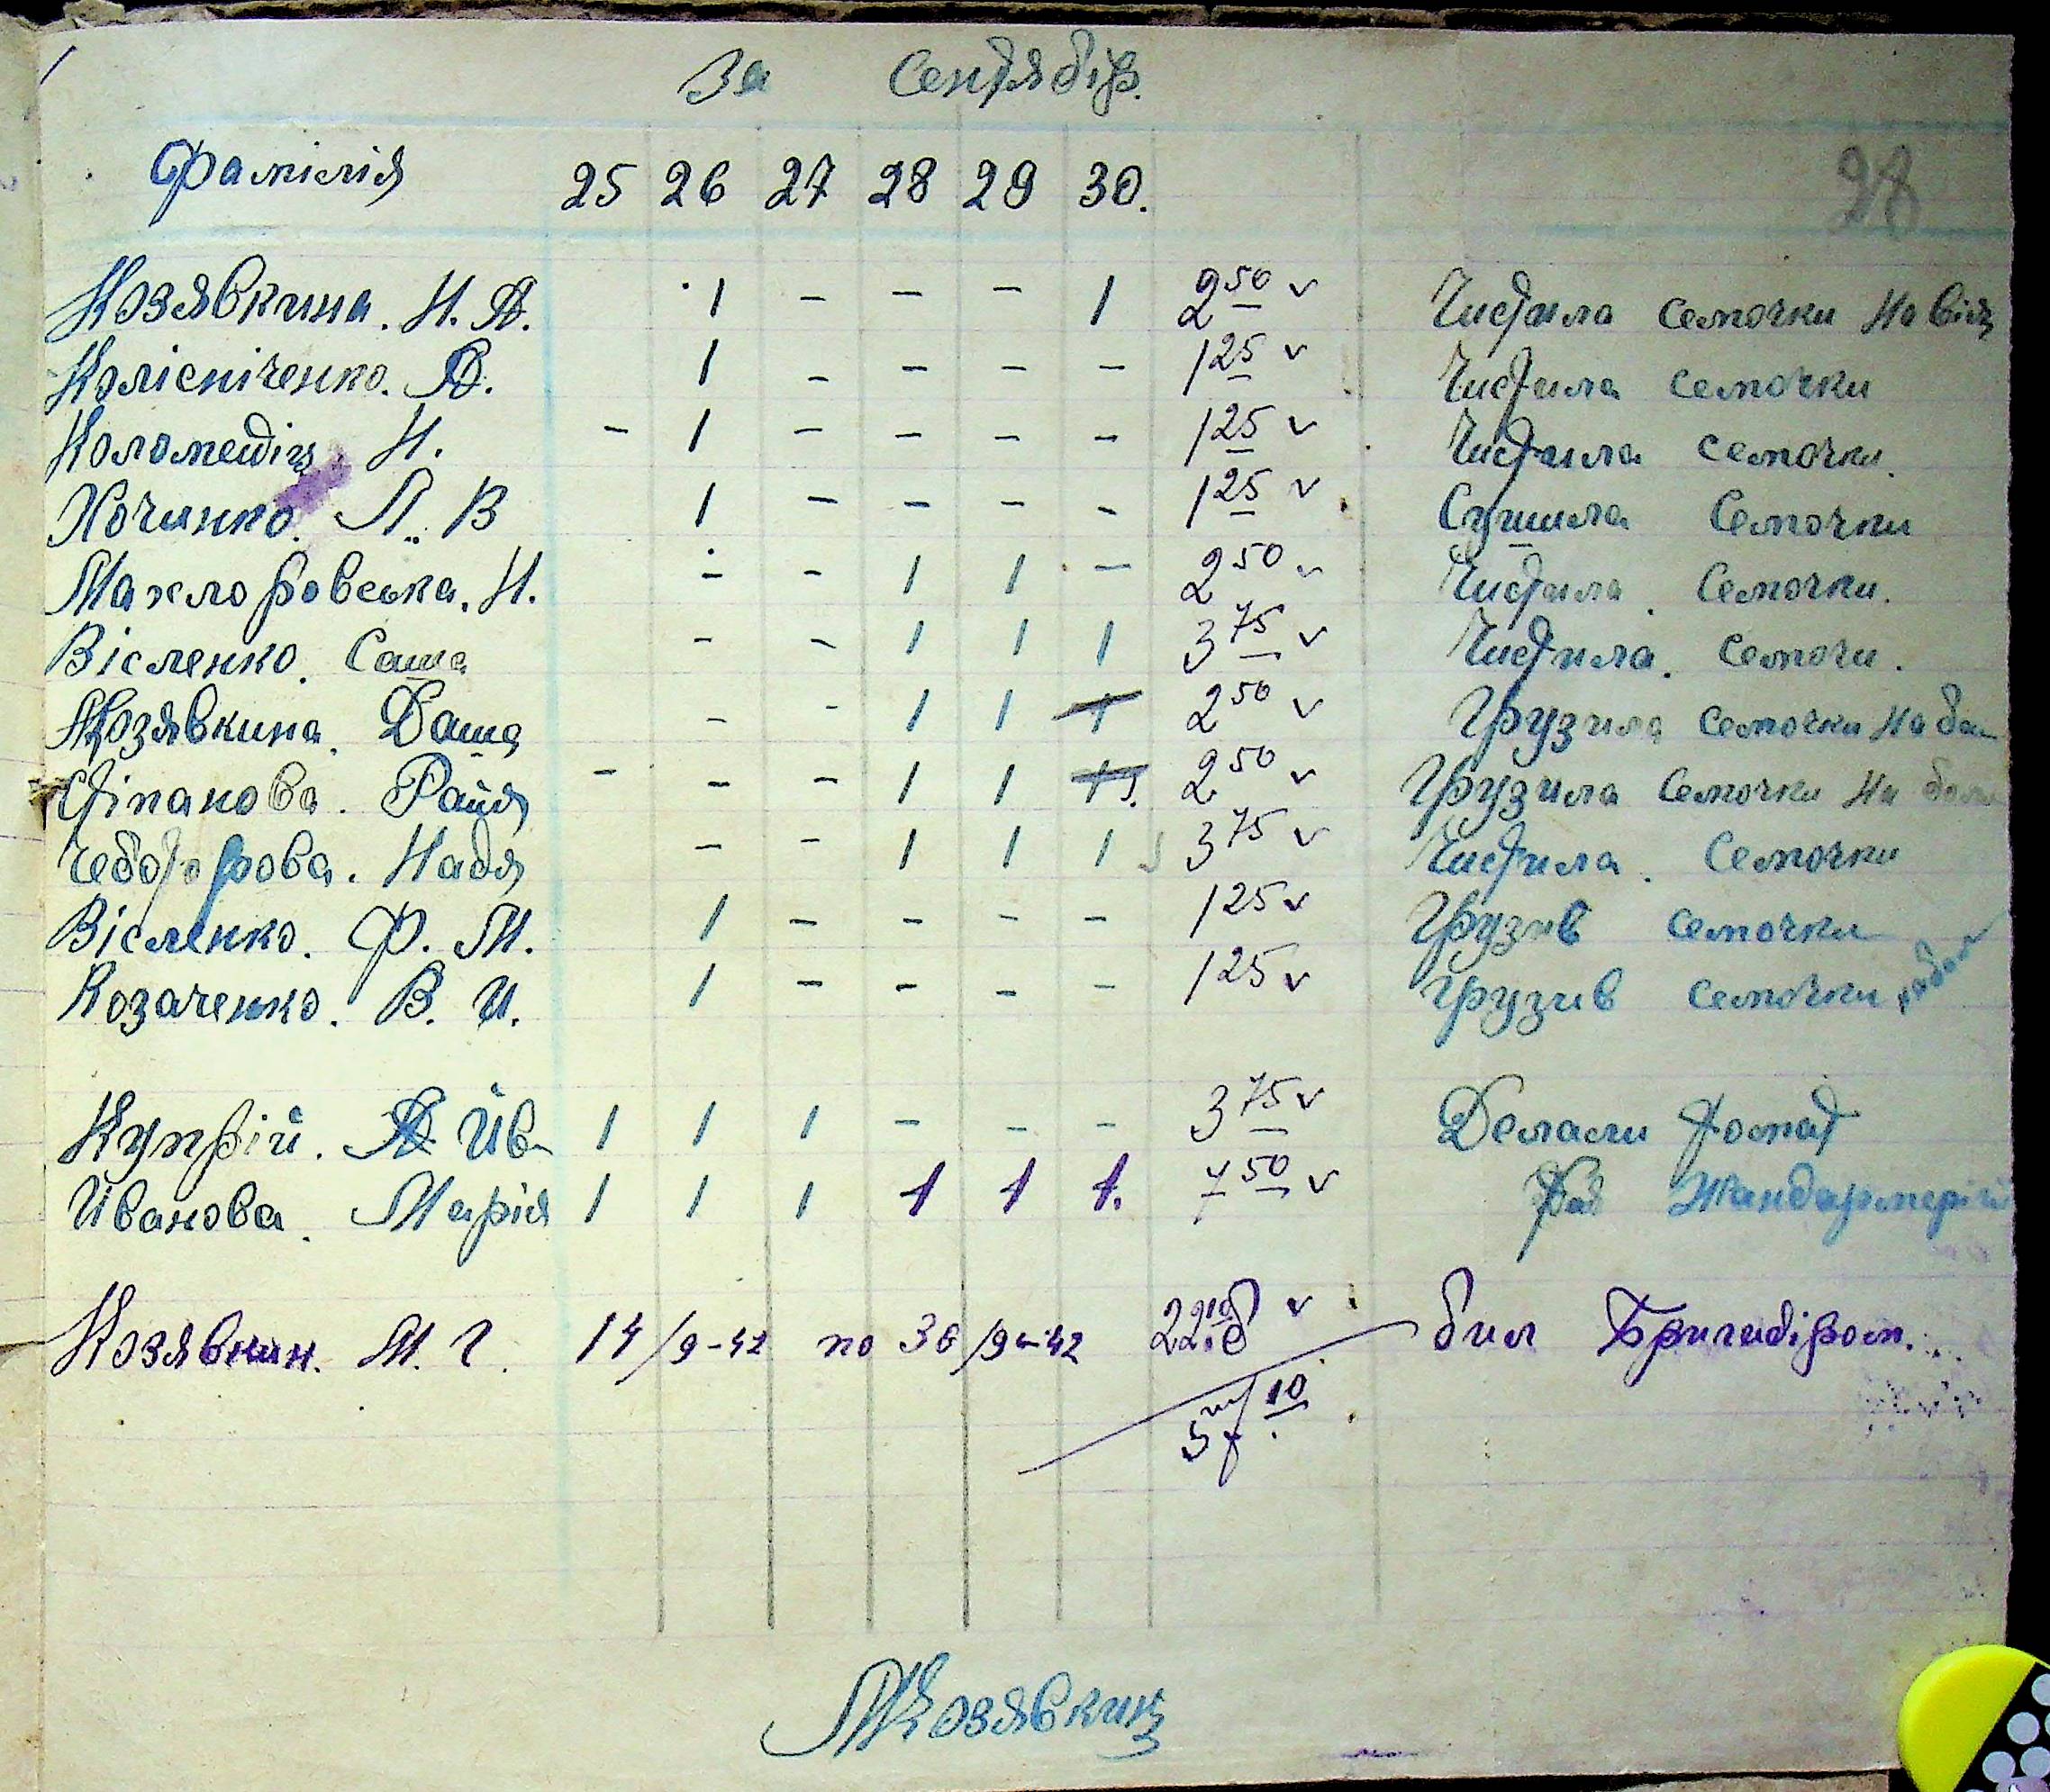 За Сентябір.
Фамілія 25 26 27 28 29 30.
28
Козявкина. Н. А. 1 - - - 1 2 50 v Чистила семочки на віял
Колісніченко. А. 1 - - - - 1 25 v Чистила семочки
Коломеіць Н. - 1 - - - - 1 25 v Чистила семочки.
Хоченко. Л. В 1 - - - - 1 25 v Сушила Семочки
Махлоровська. Н. - - 1 1 - 2 50 v Чистила. Семочки.
Вісленко. Саша - - 1 1 1 3 75 v Чистила. Семочи.
Козявкина. Даша - - 1 1 1 2 50 v Грузила семочки на
Стіпанова. Раия - - - 1 1 1 2 50 v Грузила Семочки На
Чеботорова. Надя - - 1 1 1 3 75 v Чистила. Семочки
Вісленко. Ф. М. 1 - - - - 1 25 v Грузив семочки
Козаченко. В. И. 1 - - - - 1 25 v Грузив семочки
Купрій. А Ив 1 1 1 - - - 3 75 v Делали томат
Иванова. Марія 1 1 1 1 1 1. 7 50 v Жандармерій
Козявкин. М. Г. 14/9-42 по 30/9-42 v бил Бригадіром.
57 10
МКозявкин